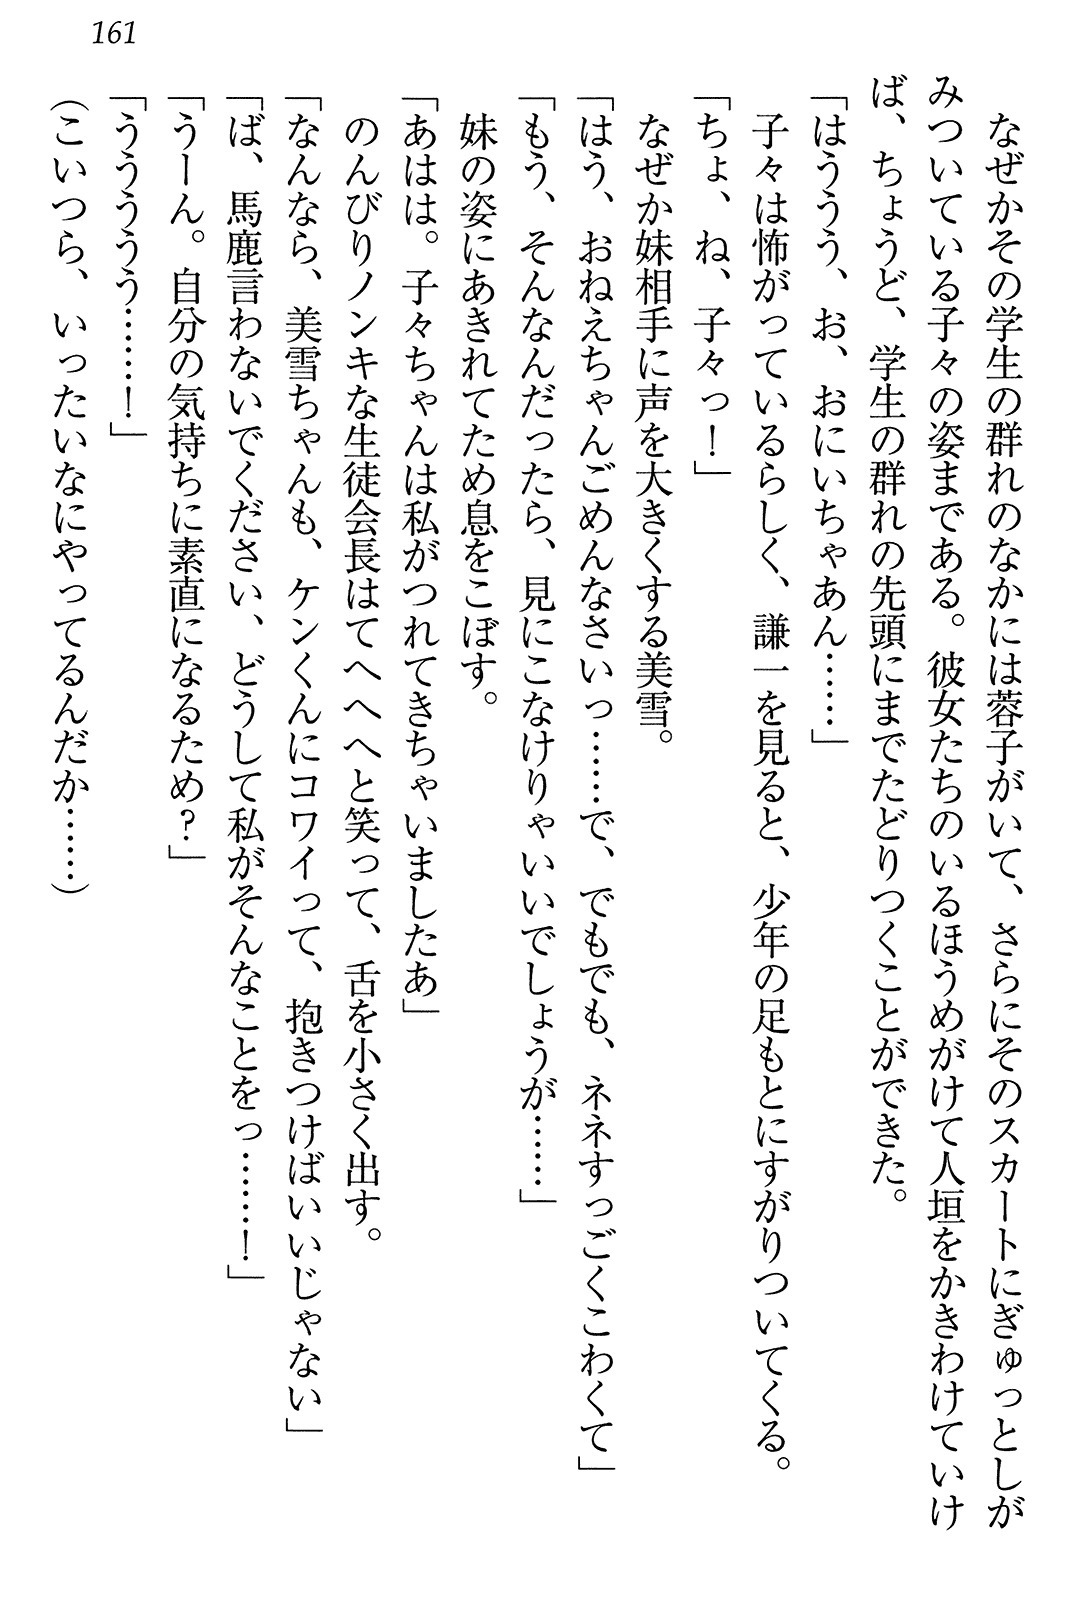 161
なぜかその学生の群れのなかには蓉子がいて、さらにそのスカートにぎゅっとしが
みついている子々の姿まである。彼女たちのいるほうめがけて人垣をかきわけていけ
ば、ちょうど、学生の群れの先頭にまでたどりつくことができた。
「はううう、お、おにいちゃあん……」
子々は怖がっているらしく、謙一を見ると、少年の足もとにすがりついてくる。
「ちょ、ね、子々っ！」
なぜか妹相手に声を大きくする美雪。
「はう、おねえちゃんごめんなさいっ……で、でもでも、ネネすっごくこわくて」
「もう、そんなんだったら、見にこなけりゃいいでしょうが……」
妹の姿にあきれてため息をこぼす。
「あはは。子々ちゃんは私がつれてきちゃいましたあ」
のんびりノンキな生徒会長はてへへへと笑って、舌を小さく出す。
「なんなら、美雪ちゃんも、ケンくんにコワイって、抱きつけばいいじゃない」
「ば、馬鹿言わないでください、どうして私がそんなことをっ……！」
「うーん。自分の気持ちに素直になるため？」
「ううううう……！」
（こいつら、いったいなにやってるんだか……）